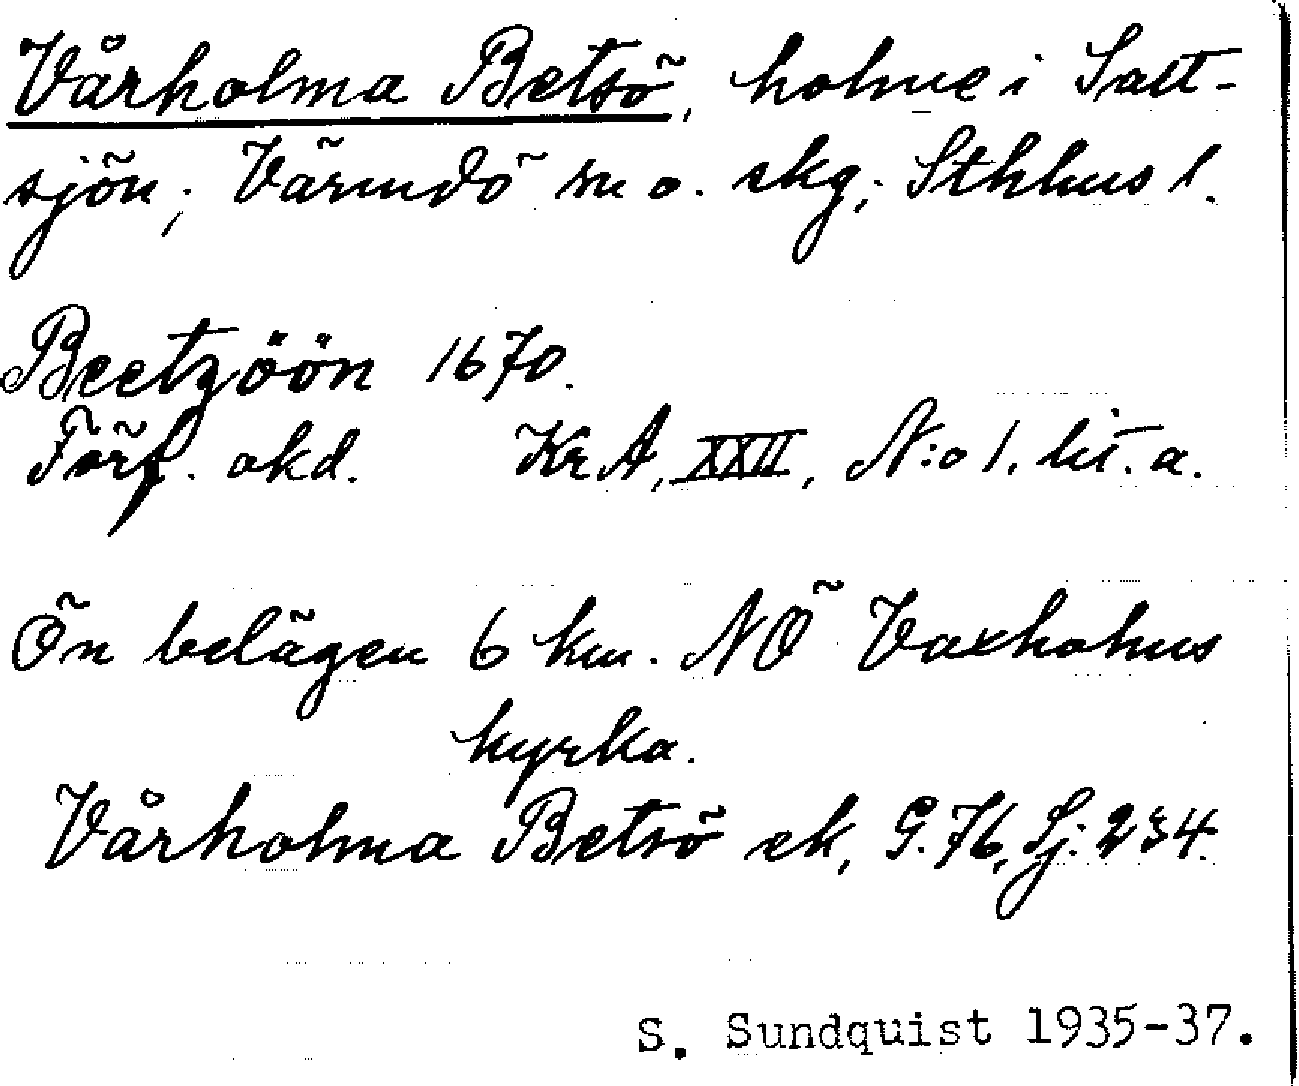 Vårholma Betsö, holme i Salt-
sjön; Värmdö sn o. skg; Sthlms l.
Beetzöön 1670.
Förf. okd. Kr A, XXII, N:o 1. lit. a.
Ön belägen 6 km. NÖ Vaxholms
kyrka.
Vårholma Betsö ek, G. 76, Sj: 234.
S. Sundquist 1935-37.